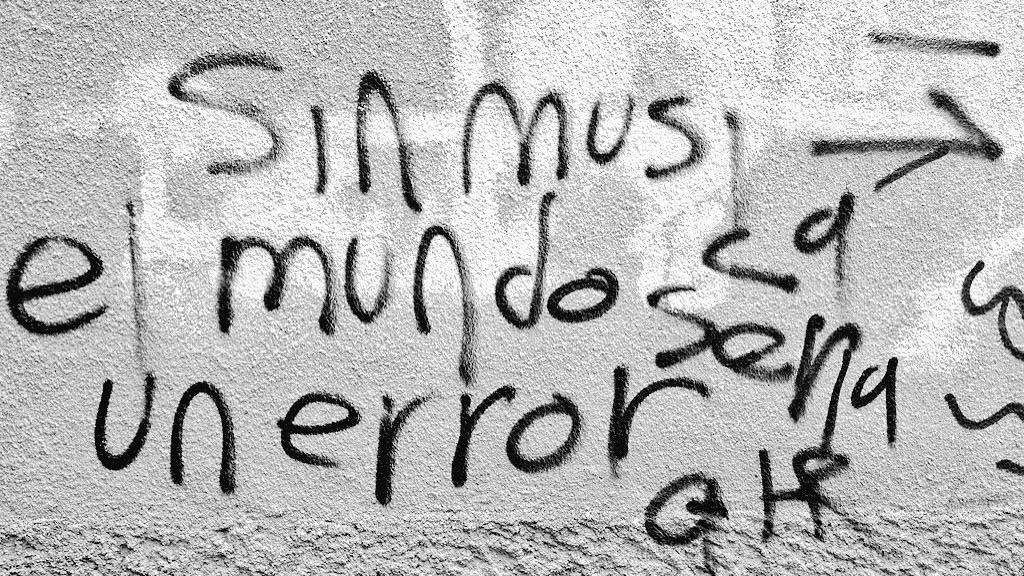 Sin musica
el mundo seria
un error